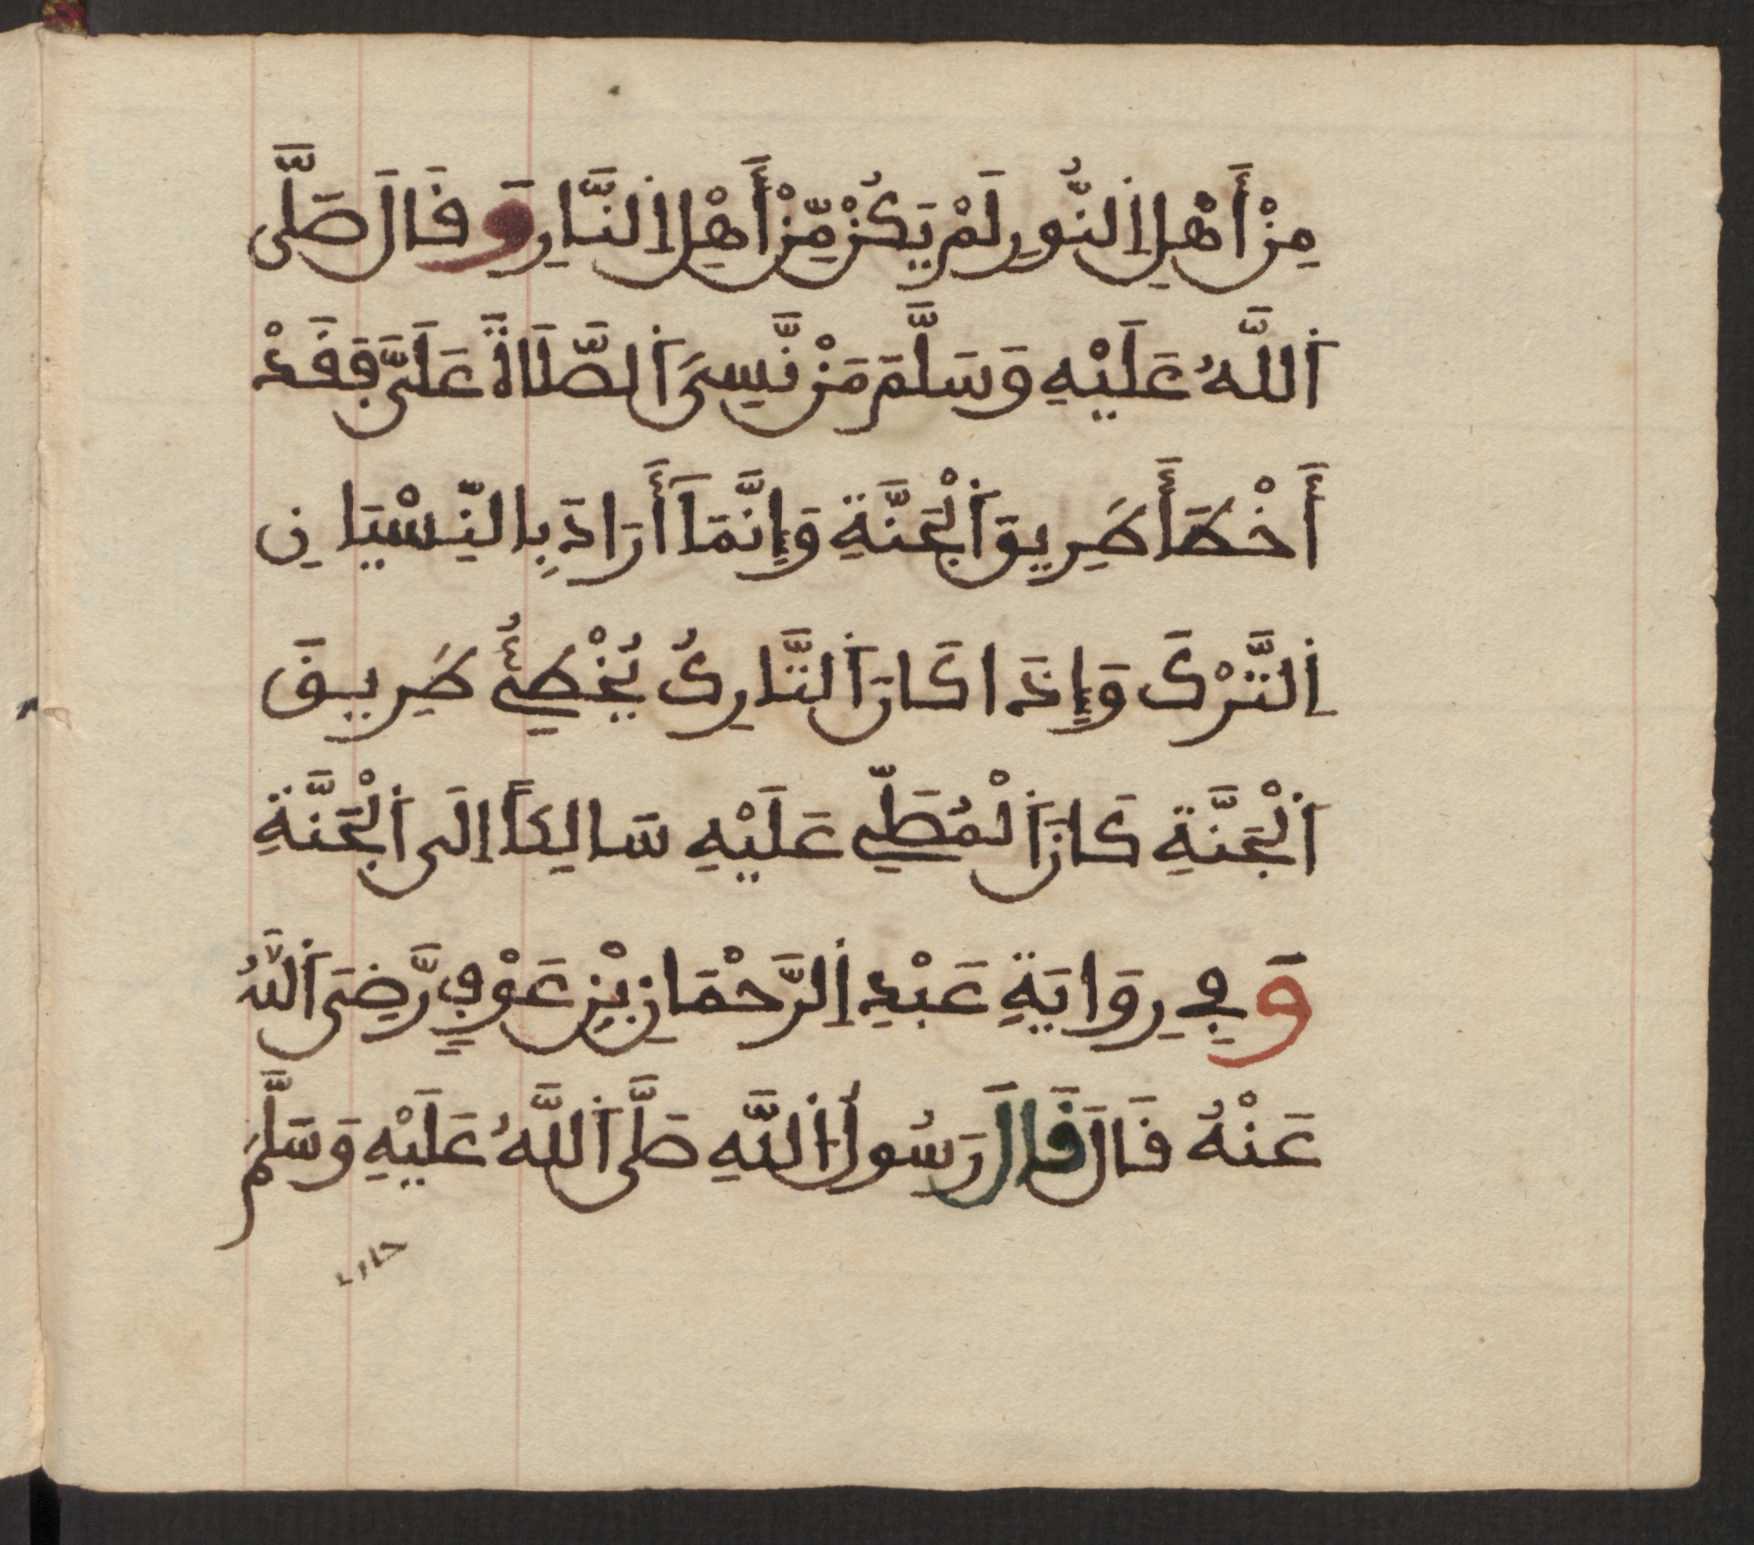 مِنْ أَهْلِ اِ۬لنُّورِ لَمْ يَكُنْ مِّنْ أَهْلِ اِ۬لنَّارِ وَقَالَ صَلَّى
اَ۬للَّهُ عَلَيْهِ وَسَلَّمَ مَنْ نَّسِىَ اَ۬لصَّلَاةَ عَلَىَّ فَقَدْ
أَخْطَأَ طَرِيقَ اَ۬لْجَنَّةِ وَإِنَّمَا أَرَادَ بِالنِّسْيَانِ
اِ۬لتَّرْكَ وَإِذَا كَانَ اَ۬لتَّارِكُ يُخْطِئُ طَرِيقَ
اَ۬لْجَنَّةِ كَانَ اَ۬لْمُصَلِّي عَلَيْهِ سَالِكاً اِلَى اَ۬لْجَنَّةِ
وَفِي رِوَايَةِ عَبْدِ اِ۬لرَّحْمَانِ بْنِ عَوْفٍ رَّضِىَ اَ۬للَّهُ
عَنْهُ قَالَ قَالَ رَسُولُ اُ۬للَّهِ صَلَّى اَ۬للَّهُ عَلَيْهِ وَسَلَّمَ